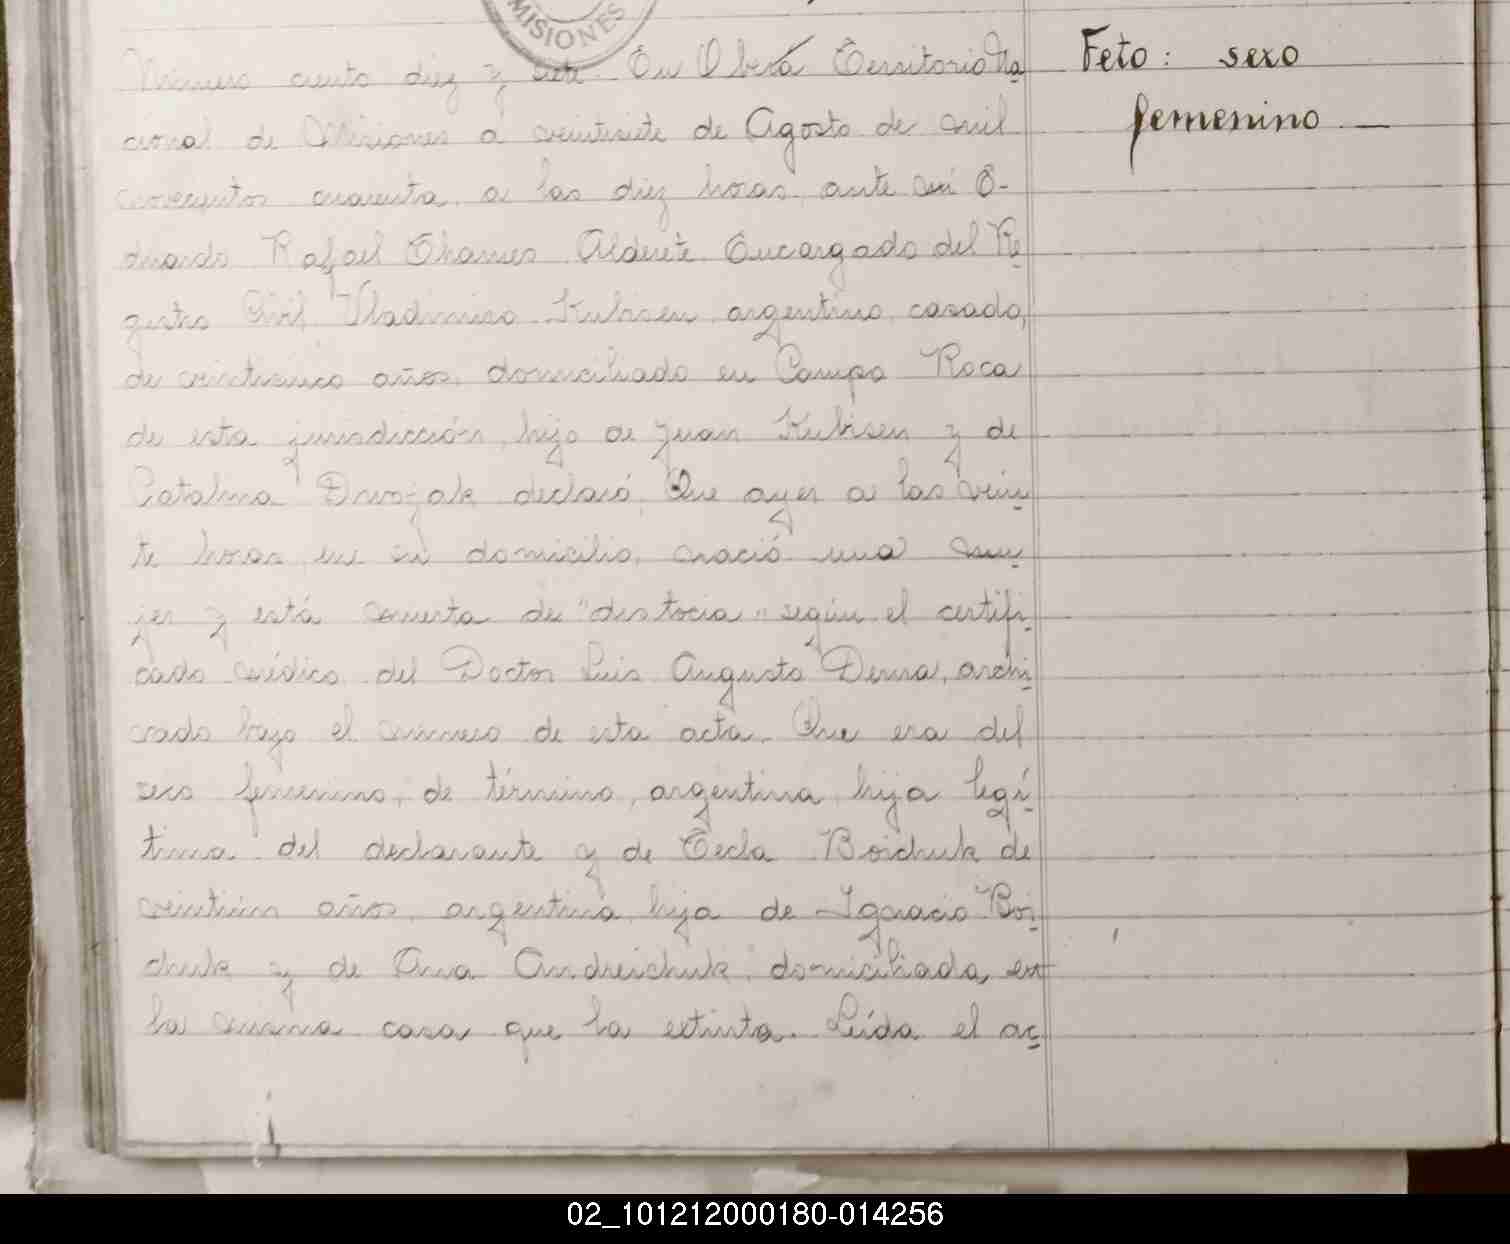 MISIONES
Número ciento diez y siete. En Oberá Territorio Na
cional de Misiones a veintisiete de Agosto de mil
novecientos cuarenta, a las diez horas, ante mí E-
duardo Rafael Chames Alderete Encargado del Re
gistro Civil, Vladimiro Kubisen, argentino, casado,
de veinticinco años, domiciliado en Campo Roca
de esta jurisdicción, hijo de Juan Kubisen y de
Catalina Dwojak declaró: Que ayer a las vein
te horas, en su domicilio, nació una mu
jer y está muerta de "distocia" según el certifi-
cado médico del Doctor Luis Augusto Derna, archi
vado bajo el número de esta acta. Que era del
sexo femenino, de término, argentina, hija legí-
tima del declarante y de Tecla Boichuk de
veintiún años, argentina, hija de Ignacio Boi-
chuk y de Ana Andreichuk, domiciliada en
la misma casa que la extinta. Leída el ac
Feto: sexo
femenino —
02_101212000180-014256